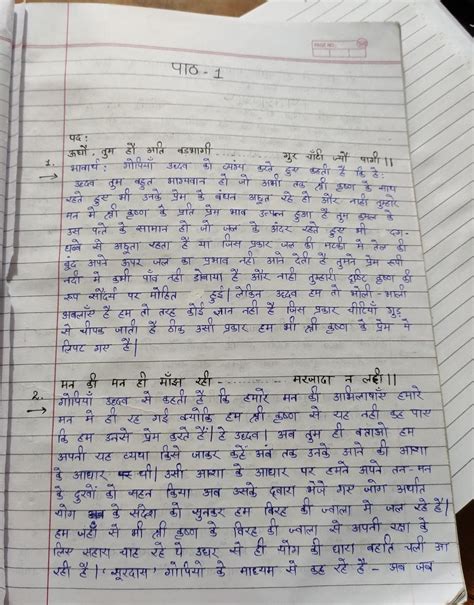 PAGE NO.
पाठ - 1
पद :
ऊधौ, तुम हौ अति बडभागी ........... गुर चाँटी ज्यों पागी ||
1. भावार्थ : गोपियाँ उद्धव को व्यंग्य करते हुए कहती है कि है:
उद्धव तुम बहुत भाग्यवान हो जो अभी तक श्री कृष्ण के साथ
रहते हुए भी उनके प्रेम के बंधन अछूत रहे हो और नाही तुम्हारे
मन में श्री कृष्ण के प्रति प्रेम भाव उत्पन्न हुआ है तुम कमल के
उस पत्ते के सामान हो जो जल के अंदर रहते हुए भी दाग-
धब्बे से अछूता रहता है या जिस प्रकार जल की मटकी में तेल की
बुंद अपने ऊपर जल का प्रभाव नही आने देती है तुमने प्रेम रूपी
नदी में कभी पाँव नही डोबाया है और नाही तुम्हारी दृष्टि कृष्ण की
रूप सौंदर्य पर मोहित हुई| लेकिन उद्धव हम तो भोली-भाली
अबलाँए है हम तो तरह कोई ज्ञान नही है जिस प्रकार चीटियाँ गुड़
से चीपक जाती है ठीक उसी प्रकार हम भी श्री कृष्ण के प्रेम में
लिपट गए है|
मन की मन ही माँझ रही ........... मरजादा न लही ||
2. गोपियाँ उद्धव से कहती है कि हमारे मन की अभिलाषाँए हमारे
मन में ही रह गई क्योकि हम श्री कृष्णा से यह नही कह पास
कि हम उनसे प्रेम करते है| हे उद्धव! अब तुम ही बताओ हम
अपनी यह व्यथा किसे जाकर कहें अब तक उनके आने की आशा
के आधार पर थी| उसी आशा के आधार पर हमने अपने तन-मन
के दुखों को सहन किया अब उसके दवारा भेजे गए जोग अर्थात
योग के संदेश को सुनकर हम विरह की ज्वाला में जल रहे है|
हम जहाँ से भी श्री कृष्ण के विरह की ज्वाला से अपनी रक्षा के
लिए सहारा चाह रहे थे उधर से ही योग की धारा बहति चली आ
रही है| 'सूरदास' गोपियो के माध्यम से कह रहे है - अब जब